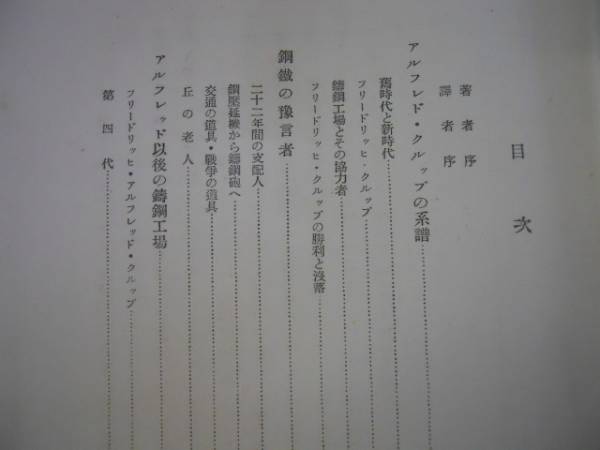 目次
著者序
譯者序
アルフレド・クルップの系譜
舊時代と新時代
フリードリッヒ・クルップ
鑄鋼工場とその協力者
フリードリッヒ・クルップの勝利と沒落
鋼鐵の豫言者
二十二年間の支配人
鋼壓延機から鑄鋼砲へ
交通の道具・戰爭の道具
丘の老人
アルフレッド以後の鑄鋼工場
フリードリッヒ・アルフレッド・クルップ
第四代